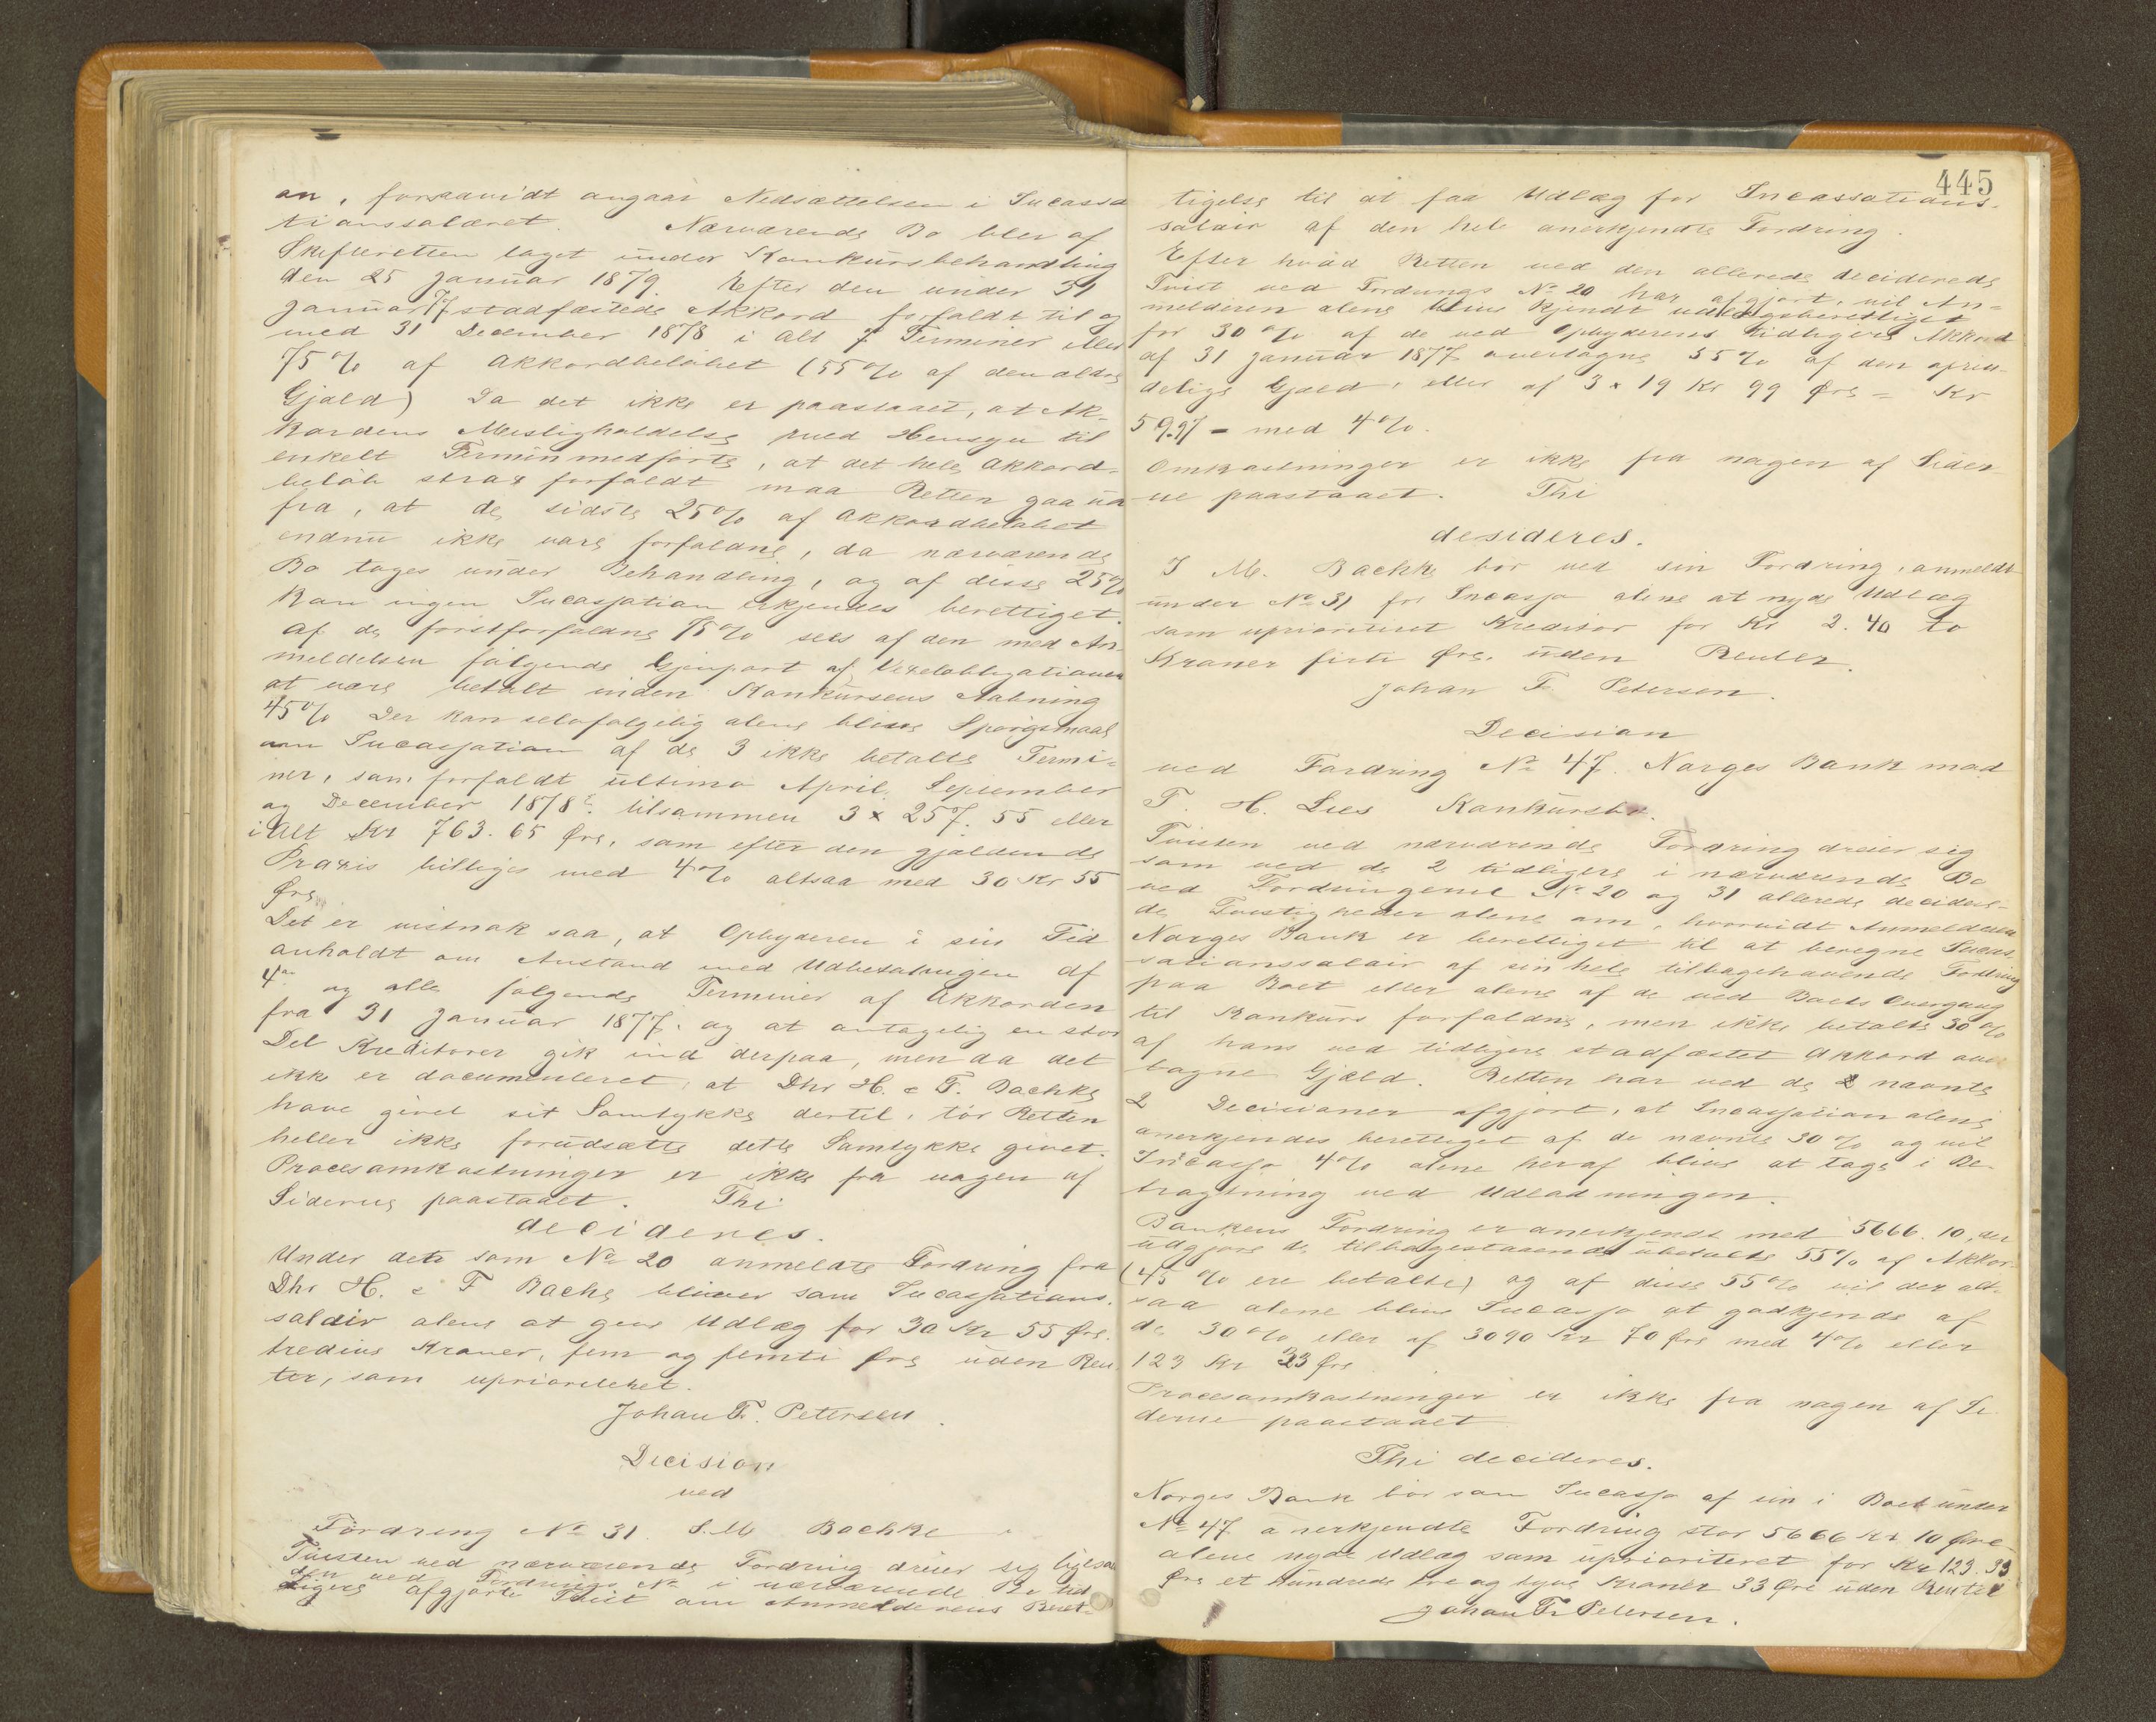 an, forsaavidt angaar Nedsættelsen i Incassa
tionssalæret. Nærværende Bo blev af
Skifteretten taget under Konkursbehandling
den 25 Januar 1879. Efter den under 31
Januar 77 stadfæstede Akkord forfaldt til og
med 31 December 1878 i alt 7 Terminer eller
75% af Akkordbeløbet (55% af den ældre
Gjæld) Da det ikke er paastaaet, at Ak-
kordens Misligholdelse med Hensyn til
enkelt Termin medførte, at det hele Akkord-
beløb strax forfaldt maa Retten gaa ud
fra, at de sidste 25% af Akkordbeløbet
endnu ikke vare forfaldne, da nærværende
Bo toges under Behandling, og af disse 25%
kan ingen Incassation erkjendes berettiget.
Af de førstforfaldne 75% sees af den med An-
meldelsen følgende Gjenpart af Vexelobligationen
at være betalt inden Konkursens Aabning
45% Der kan selvfølgelig alene blive Spørgsmaal
om Incassation af de 3 ikke betalte Termi-
ner, som forfaldt ultimo April, September
og December 1878: tilsammen 3 x 257. 55 eller
i Alt Kr 763. 65 Øre, som efter den gjældende
Praxis billiges med 4% altsaa med 30 Kr 55
Øre
Det er vistnok saa, at Opbyderen i sin Tid
anholdt om Anstand med Udbetalingen af
4de og alle følgende Terminer af Akkorden
fra 31 Januar 1877. og at antagelig en stor
Del Kreditorer gik ind derpaa, men da det
ikke er documenteret, at Dhr H. & F. Bachke
have givet sit Samtykke dertil, tør Retten
heller ikke forudsætte dette Samtykke givet.
Procesomkostninger er ikke fra nogen af
Siderne paastaaet. Thi
decideres.
Under dets som No 20 anmeldte Fordring fra
Dhr H. & F Bachs bliver som Incassations-
salair alene at give Udlæg for 30 Kr 55 Øre.
tredive Kroner, fem og femti Øre uden Ren-
ter, som uprioriteret.
Johan Fr. Petersen.
Decision
ved
Fordring No 31. J. M. Bachke
Tvisten ved nærværende Fordring dreier sig ligesom
den ved Fordrings No i nærværende Bo tid-
ligere afgjorte Tvist om Anmelderens Beret-
445
tigelse til at faa Udlæg for Incassations-
salair af den hele anerkjendte Fordring.
Efter hvad Retten ved den allerede deciderede
Tvist ved Fordrings No 20 har afgjort, vil An-
melderen alene blive kjendt udlægsberettiget
for 30% af de ved Opbyderens tidligere Akkord
af 31 Januar 1877 overtagne 55% af den oprin-
delige Gjæld, eller af 3 x 19 Kr 99 Øre = Kr
59.97 = med 4%.
Omkostninger er ikke fra nogen af Sider
ne paastaaet. Thi
desideres.
J M. Bachke bør ved sin Fordring, anmeldt
under No 31 for Incasso alene at nyde Udlæg
som uprioriteret Kreditor for Kr 2. 40 to
Kroner firti Øre. uden Renter.
Johan Fr. Petersen.
Decision
ved Fordring No 47. Norges Bank mod
T. H. Lies Konkursbo.
Tvisten ved nærværende Fordring dreier sig
som ved de 2 tidligere i nærværende Bo
ved Fordringerne No 20 og 31 allerede decidere-
de Tvistigheder alene om, hvorvidt Anmelderen
Norges Bank er berettiget til at beregne Incas-
sationssalair af sin hele tilbagehavende Fordring
paa Boet eller alene af de ved Boets Overgang
til Konkurs forfaldne, men ikke betalte 30%
af hans ved tidligere stadfæstet Akkord over
tagne Gjæld. Retten har ved de 2 nævnte
2 Decisioner afgjort, at Incassation alene
anerkjendes berettiget af de nævnte 30% og vil
Incasso 4% alene heraf blive at tage i Be-
tragtning ved Udlodningen.
Bankens Fordring er anerkjendt med 5666. 10, der
udgjøre de tilbagestaaende ubetalte 55% af Akkor
(45% ere betalte) og af disse 55% vil der alt-
saa alene blive Incasso at godkjende af
de 30% eller af 3090 Kr 70 Øre med 4% eller
123 Kr 33 Øre
Procesomkostninger er ikke fra nogen af Si
derne paastaaet
Thi decideres.
Norges Bank bør som Incasso af sin i Boet under
No 47 anerkjendte Fordring stor 5666 Kr 10 Øre
alene nyde Udlæg som uprioriteret for Kr 123. 33
Øre et hundrede tre og tyve Kroner 33 Øre uden Renter
Johan Fr Petersen.